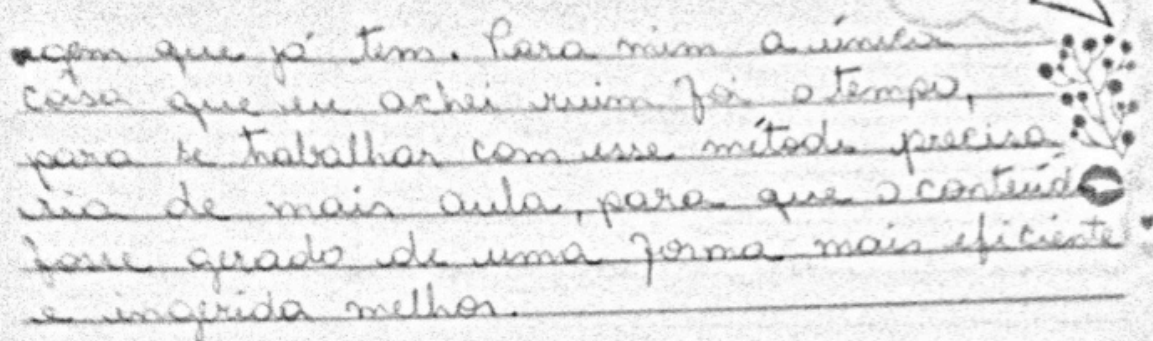 agem que já tem. Para mim a única
coisa que eu achei ruim foi o tempo,
para se trabalhar com esse método precisa
ria de mais aula, para que o conteúdo
fosse gerado de uma forma mais eficiente
e ingerida melhor.